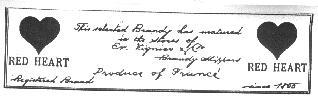 This selected Brandy has matured
in the stores of
Ev. Vignier & Co
Brandy Shippers
RED HEART
RED HEART
Produce of France
Registered Brand
since 1865